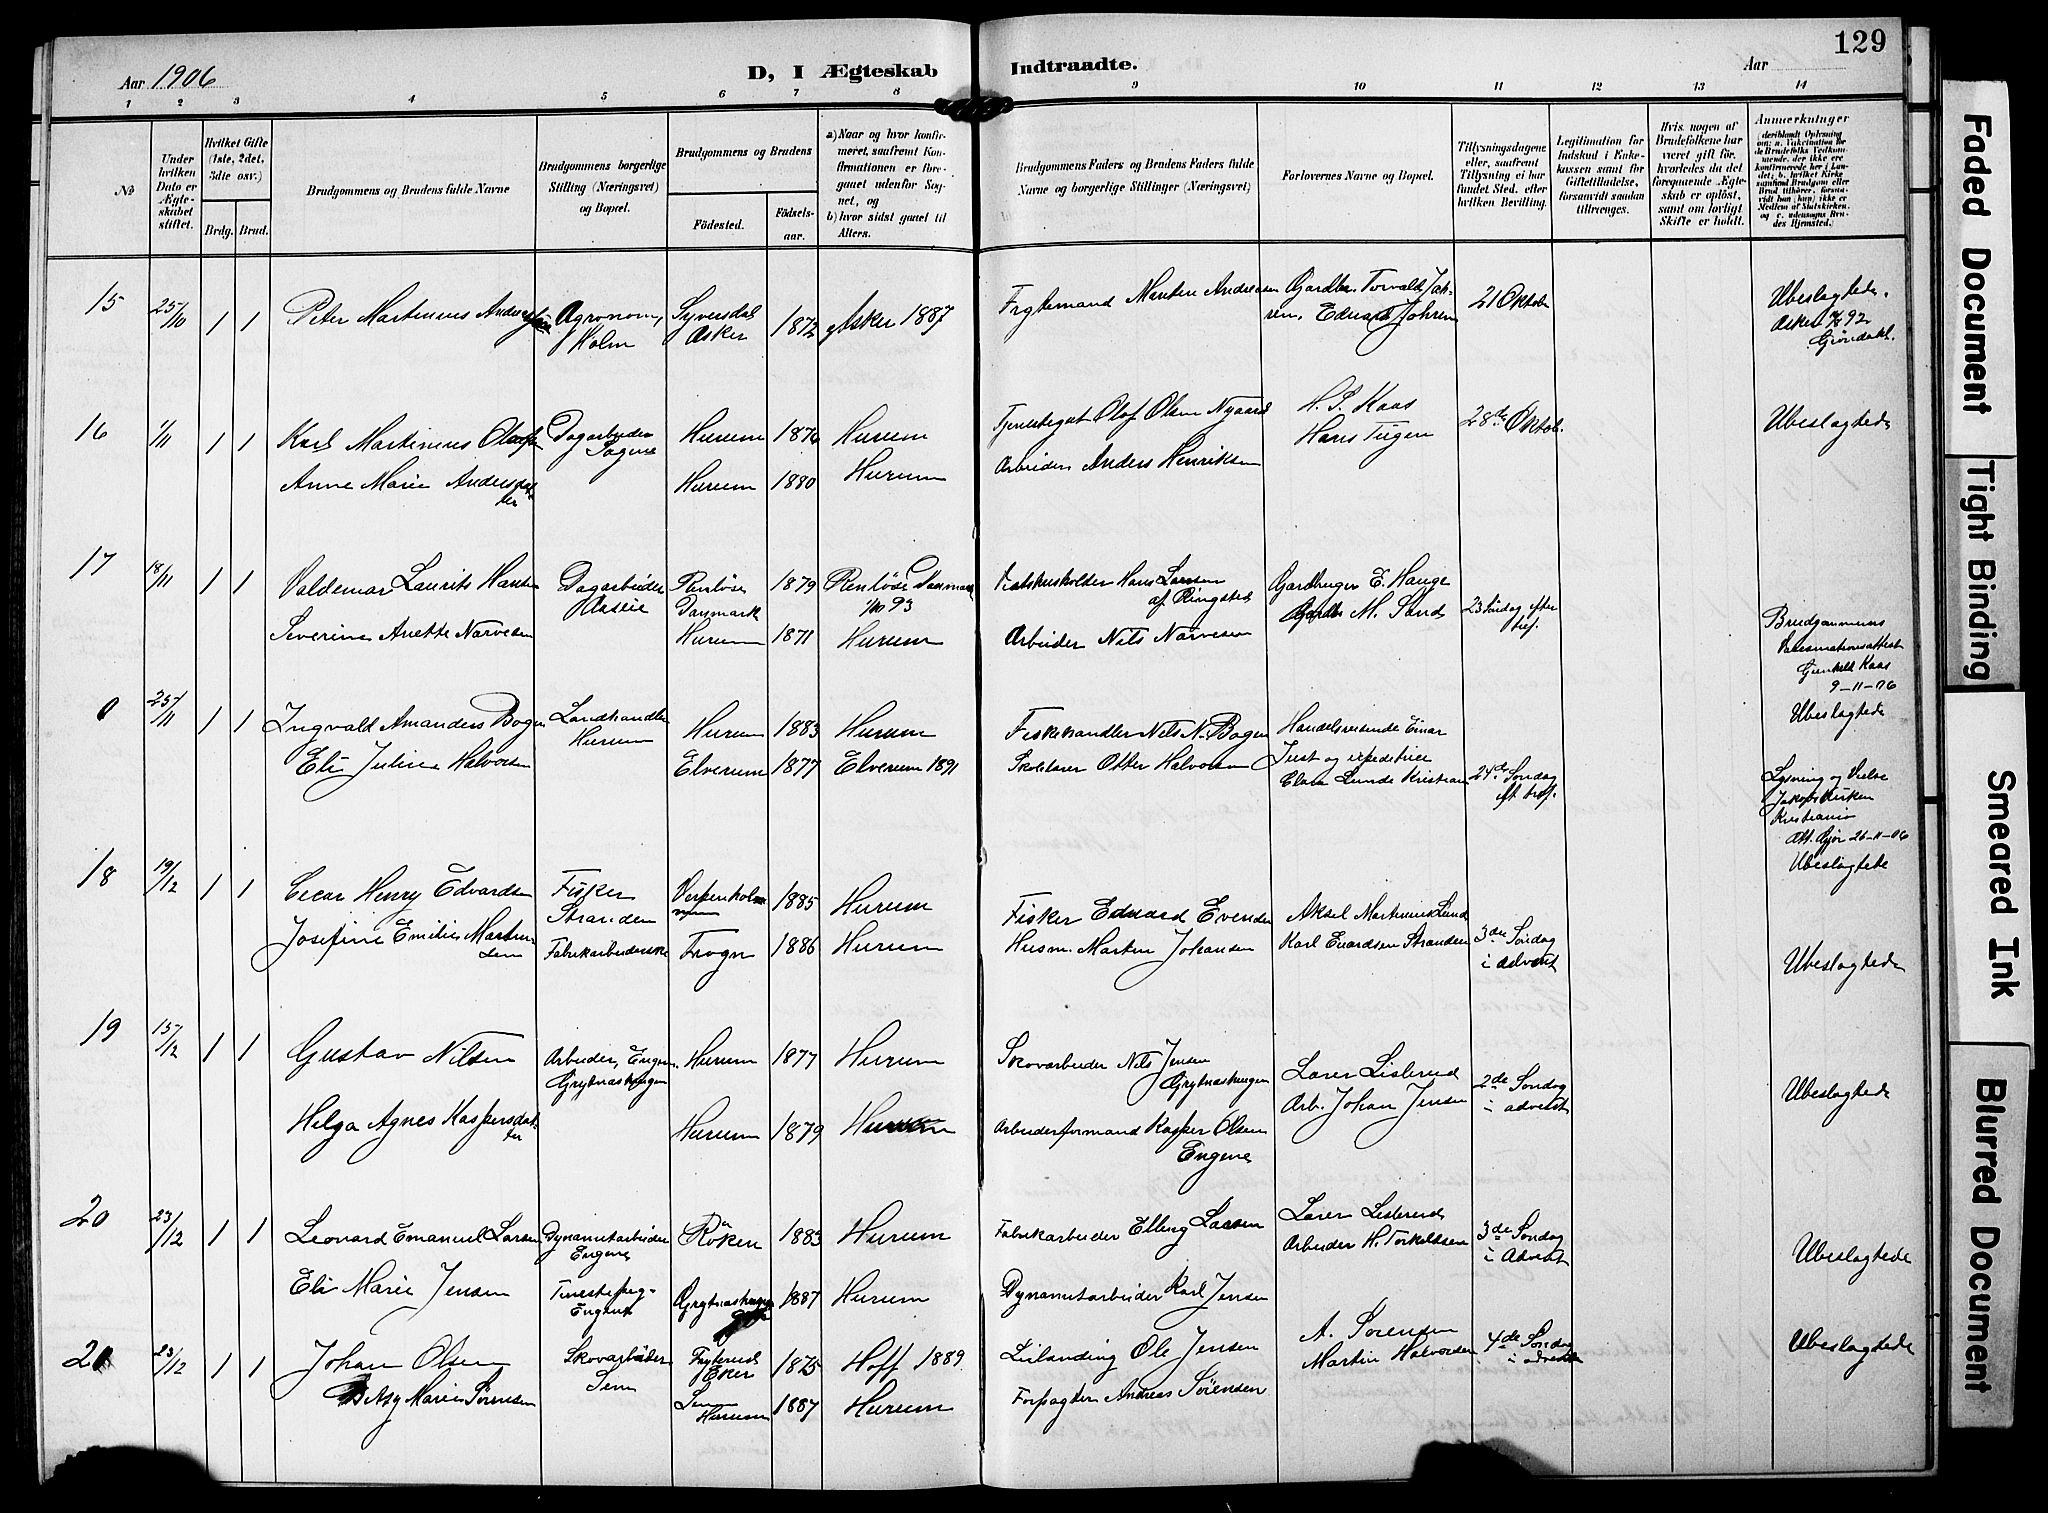 129
Aar 1906
D, I Ægteskab Indtraadte.
Aar
1 2 3 4 5 6 7 8 9 10 11 12 13 14
No
Under hvilken Dato er Ægteskabet stiftet.
Hvilket Gifte (1ste, 2det, 3dte osv.)
Brdg. Brud.
Brudgommens og Brudens fulde Navne
Brudgommens borgerlige Stilling (Næringsvei) og Bopæl.
Brudgommens og Brudens
Födested.
Födselsaar.
a) Naar og hvor konfirmeret, saafremt Konfirmationen er foregaaet udenfor Sognet, og
b) hvor sidst gaaet til Alters.
Brudgommens Faders og Brudens Faders fulde Navne og borgerlige Stillinger (Næringsvei)
Forlovernes Navne og Bopæl.
Tillysningsdagene eller, saafremt Tillysning ei har fundet Sted, efter hvilken Bevilling.
Legitimation for Indskud i Enkekassen samt for Giftetilladelse, forsaavidt saadan tiltrænges.
Hvis nogen af Brudefolkene har været gift før, hvorledes da det foregaaende Ægteskab er oplöst, samt om lovligt Skifte er holdt.
Anmærkninger
15 25/10 1 1 Peter Martinius Andersen Agronom, Holm Syversdal Asker 1872 Asker 1887
Martin Andersen Gardbr. Torvald Johnsen, Edvard Johnsen 21 Oktober
Ubeslagtede.
16 1/11 1 1 Karl Martinius Olafsen Dagarbeider Sagene Hurum 1876 Hurum
Anne Marie Andersdatter Hurum 1880 Hurum
Olaf Olsen Nygaard
Arbeider Anders Henriksen
H. S. Kaas
Hans Tugen
28de Oktob.
Ubeslagtede
17 18/11 1 1 Valdemar Laurits Hansen Dagarbeider Danmark 1879 Danmark 1/10 93
Severine Anette Narvesen Hurum 1871 Hurum
Hans Larsen af Ringsted
Arbeider Nils Narvesen
Gardbruger E. Hauge
Gardbr. M. Sand
23 Søndag efter tref.
Brudgommens
Kaas
9-11-06
Ubeslagtede
0 25/11 1 1 Ingvald Amandus Bogen Landhandler Hurum Hurum 1883 Hurum
Eli Juline Halvorsen Elverum 1877 Elverum 1891
Fiskehandler Nils N. Bogen
Skolelærer Otter Halvorsen
Handelsreisende Einar
Just og
Clara Lunde Kristiania
24de Søndag eft tref.
Lysning og Vielse
Jakobs Kirken
Kristiania
26-11-06
Ubeslagtede
18 19/12 1 1 Oscar Henry Edvardsen Fisker Stranden 1885 Hurum
Josefine Emilie Martinsen Fabrikarbeiderske Frogn 1886 Hurum
Fisker Edvard Evensen
Husm. Martin Johansen
Aksel Martinius Lund
Karl Evardsen Stranden
3die Søndag i advent
Ubeslagtede
19 15/12 1 1 Gustav Nilsen Arbeider, Engene Grytnæshagen Hurum 1877 Hurum
Helga Agnes Kaspersdatter Hurum 1879 Hurum
Skovarbeider Nils Jensen Grytnæshagen
Arbeiderformand Kasper Olsen Engene
Lærer Lislerud
Arb. Johan Jensen
2de Søndag i advent
Ubeslagtede
20 23/12 1 1 Leonard Emanuel Larsen Dynamitarbeider Engene Röken 1883 Hurum
Eli Marie Jensen Tjenestepige Engene Grytnæshagen 1887 Hurum
Fabrikarbeider Elling Larsen
Dynamitarbeider Karl Jensen
Lærer Lislerud
Arbeider H. Torkeldsen
3de Søndag i Advent
Ubeslagtede
21 23/12 1 1 Johan Olsen Skovarbeider Eker 1875 Hoff 1889
Betsy Marie Sørensen Hurum 1887 Hurum
Ole Jensen
Forpagter Andreas Sörensen
A. Sörensen
Martin Halvorsen
4de Søndag i advent
Ubeslagtede
Faded Document
Tight Binding
Smeared Ink
Blurred Document